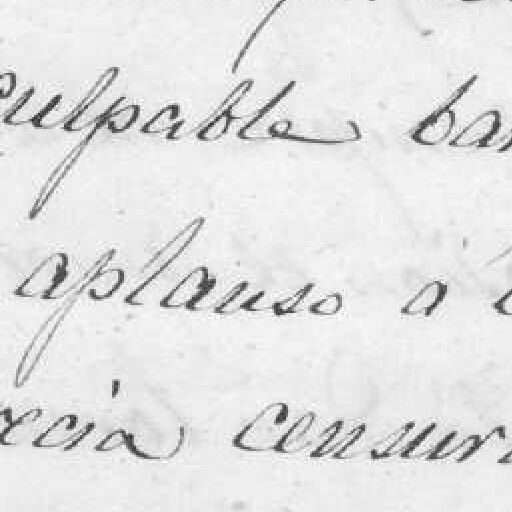 culpable ba
aplauso á
ecia censur